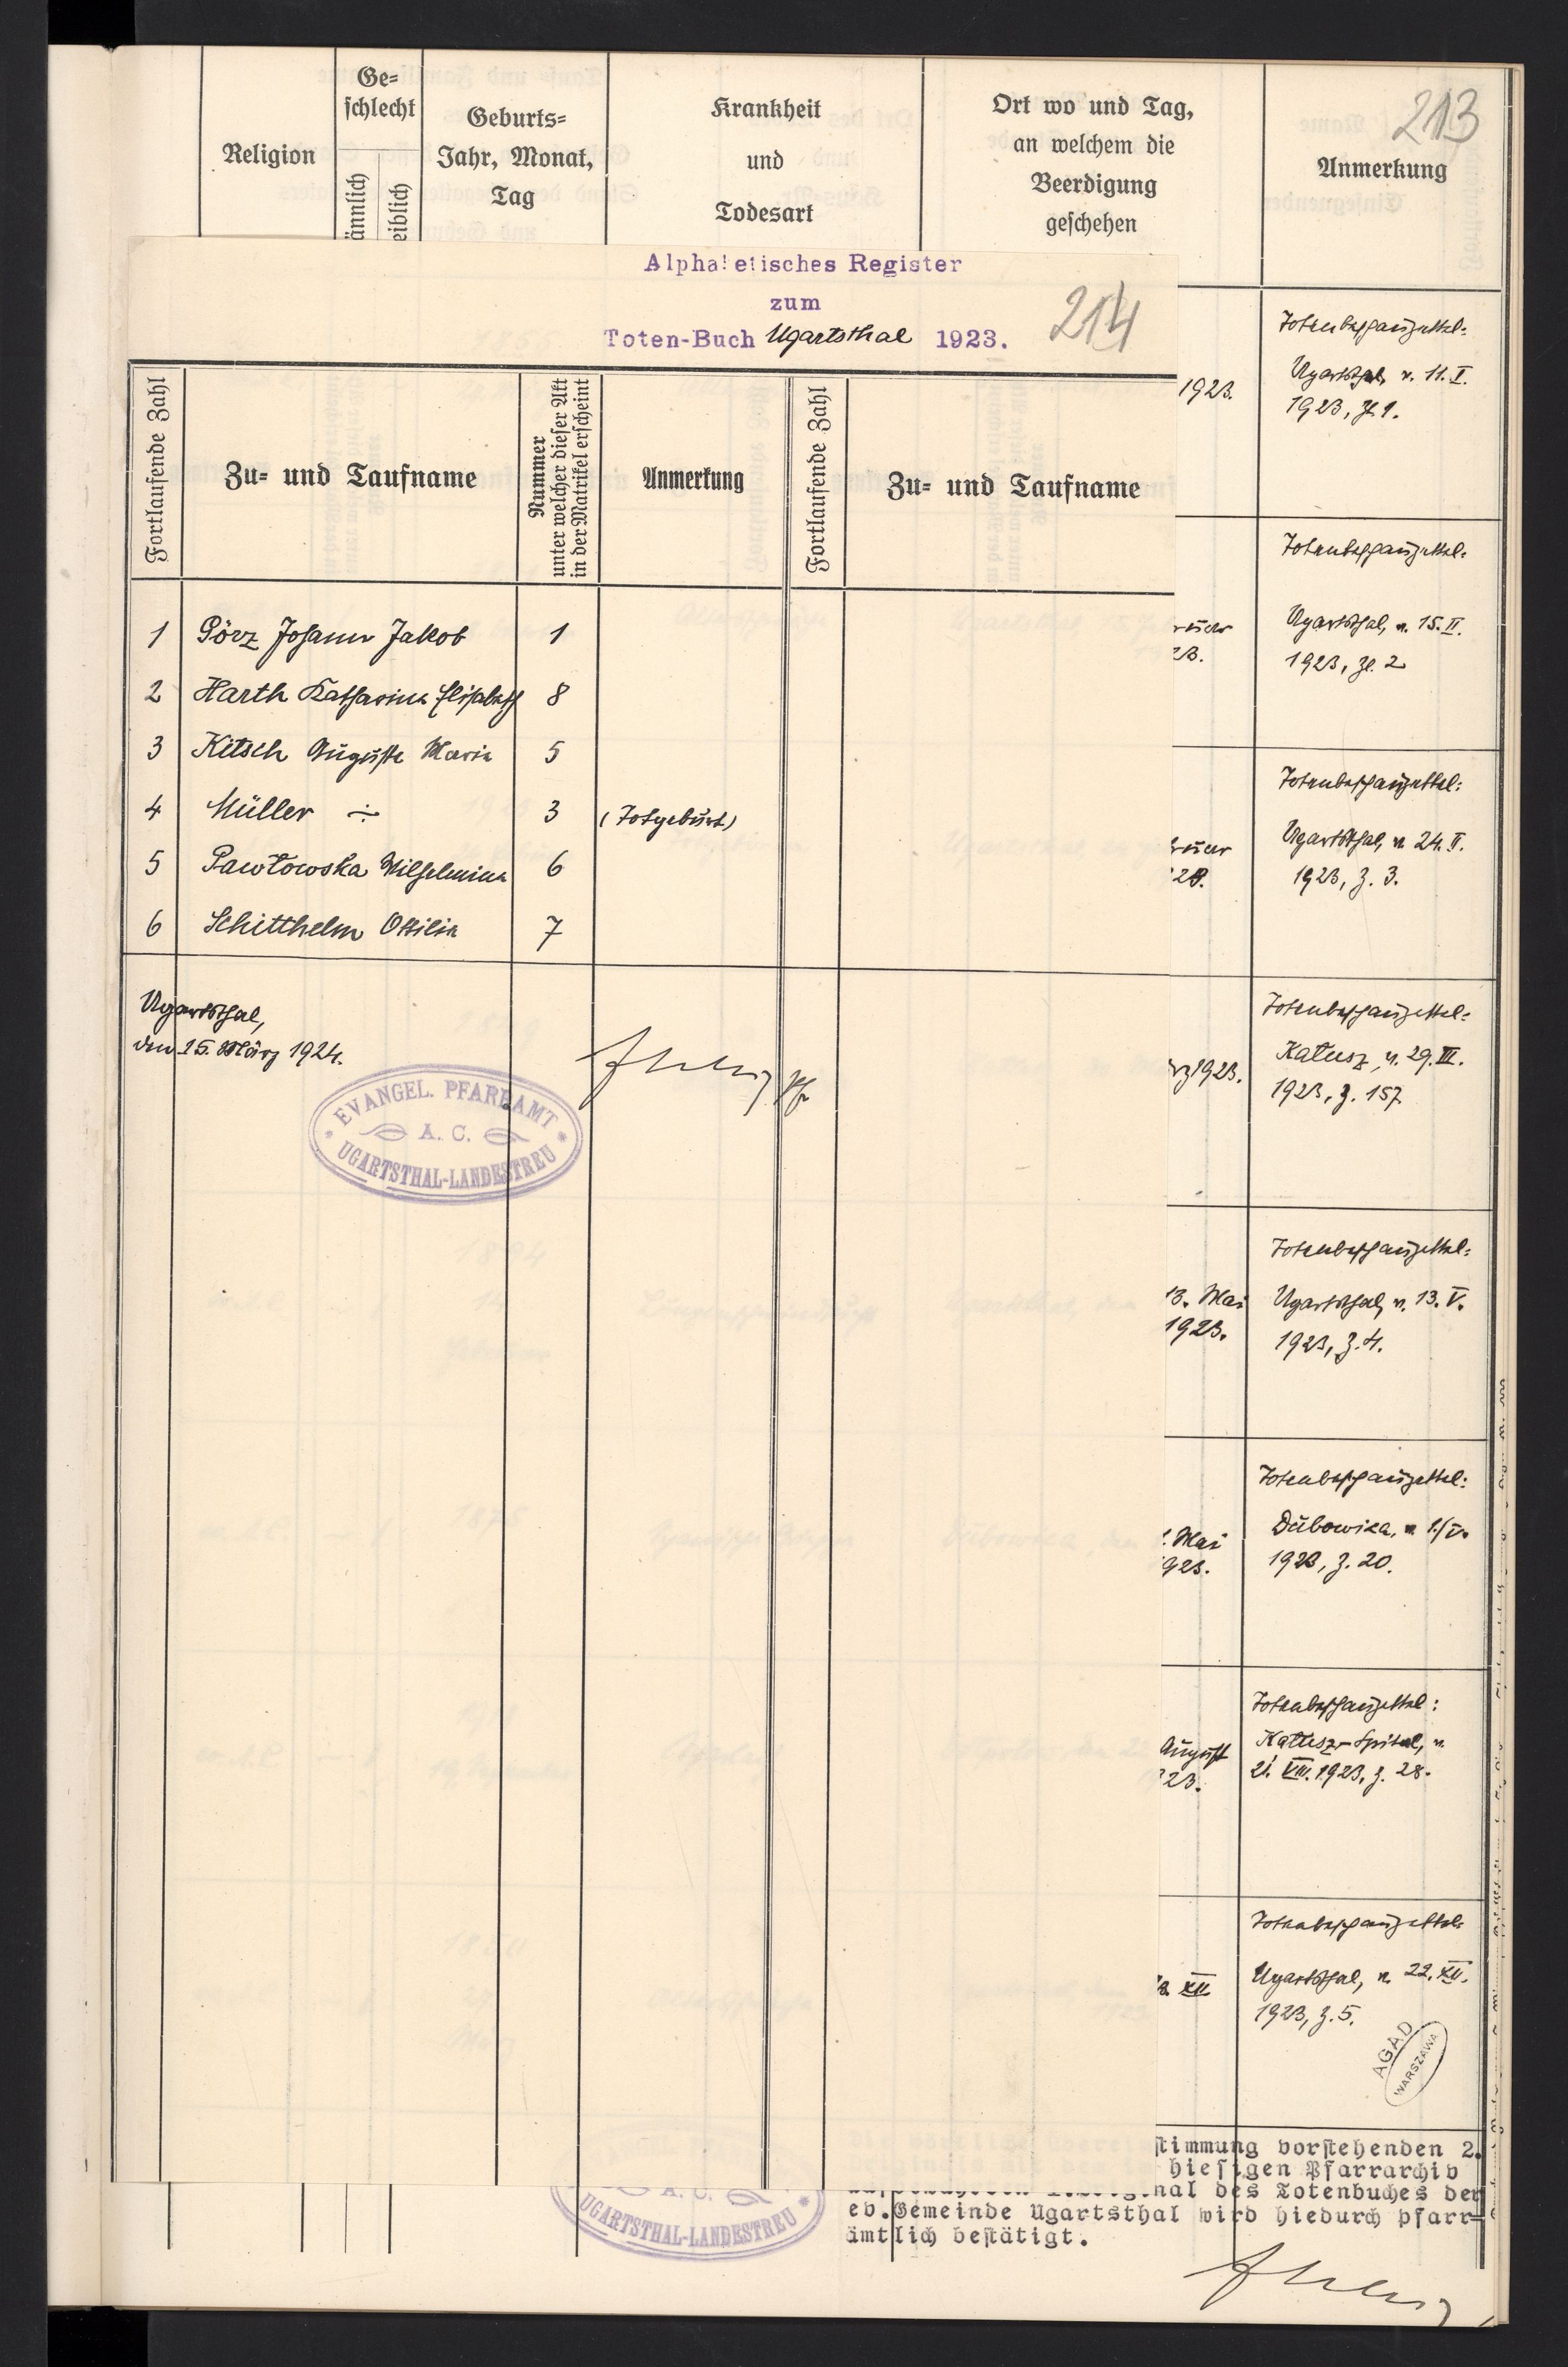 213
Religion
Ge=
schlecht
männlich
weiblich
Geburts=
Jahr, Monat,
Tag
Krankheit
und
Todesart
Ort wo und Tag,
an welchem die
Beerdigung
geschehen
Anmerkung
Alphabetisches Register
zum
Toten-Buch Ugartsthal 1923.
214
Fortlaufende Zahl
Zu= und Taufname
Nummer
unter welcher dieser Akt
in der Matrikel erscheint
Anmerkung
Fortlaufende Zahl
Zu= und Taufname
1 Görz Johann Jakob 1
2 Harth Katharina Elisabeth 8
3 Kitsch Auguste Maria 5
4 Müller ÷ 3 (Totgeburt)
5 Pawłowska Wilhelmina 6
6 Schitthelm Ottilia 7
Ugartsthal,
den 15. März 1924.
EVANGEL. PFARRAMT
A. C.
UGARTSTHAL-LANDESTREU
1923.
Totenbeschauzettel:
Ugartsthal, v. 11. I.
1923, z. 1.
Totenbeschauzettel:
Ugartsthal, v. 15. II.
1923, zl. 2
Totenbeschauzettel:
Ugartsthal, v. 24. II.
1923, z. 3.
1923.
Totenbeschauzettel:
Kałusz, v. 29. III.
1923, z. 157
13. Mai
1923.
Totenbeschauzettel:
Ugartsthal, v. 13. V.
1923, z. 4.
Mai
923.
Totenbeschauzettel:
Dubowica, v.
1923, z. 20.
August
23.
Totenbeschauzettel:
Kałusz-Spital, v.
21. VIII. 1923, z. 28.
XII
Totenbeschauzettel:
Ugartsthal, v. 22. XII.
1923, z. 5.
AGAD
WARSZAWA
stimmung vorstehenden 2.
hiesigen Pfarrarchiv
nal des Totenbuches der
ev.Gemeinde Ugartsthal wird hiedurch pfarr=
ämtlich bestätigt.
A. C.
UGARTSTHAL-LANDESTREU